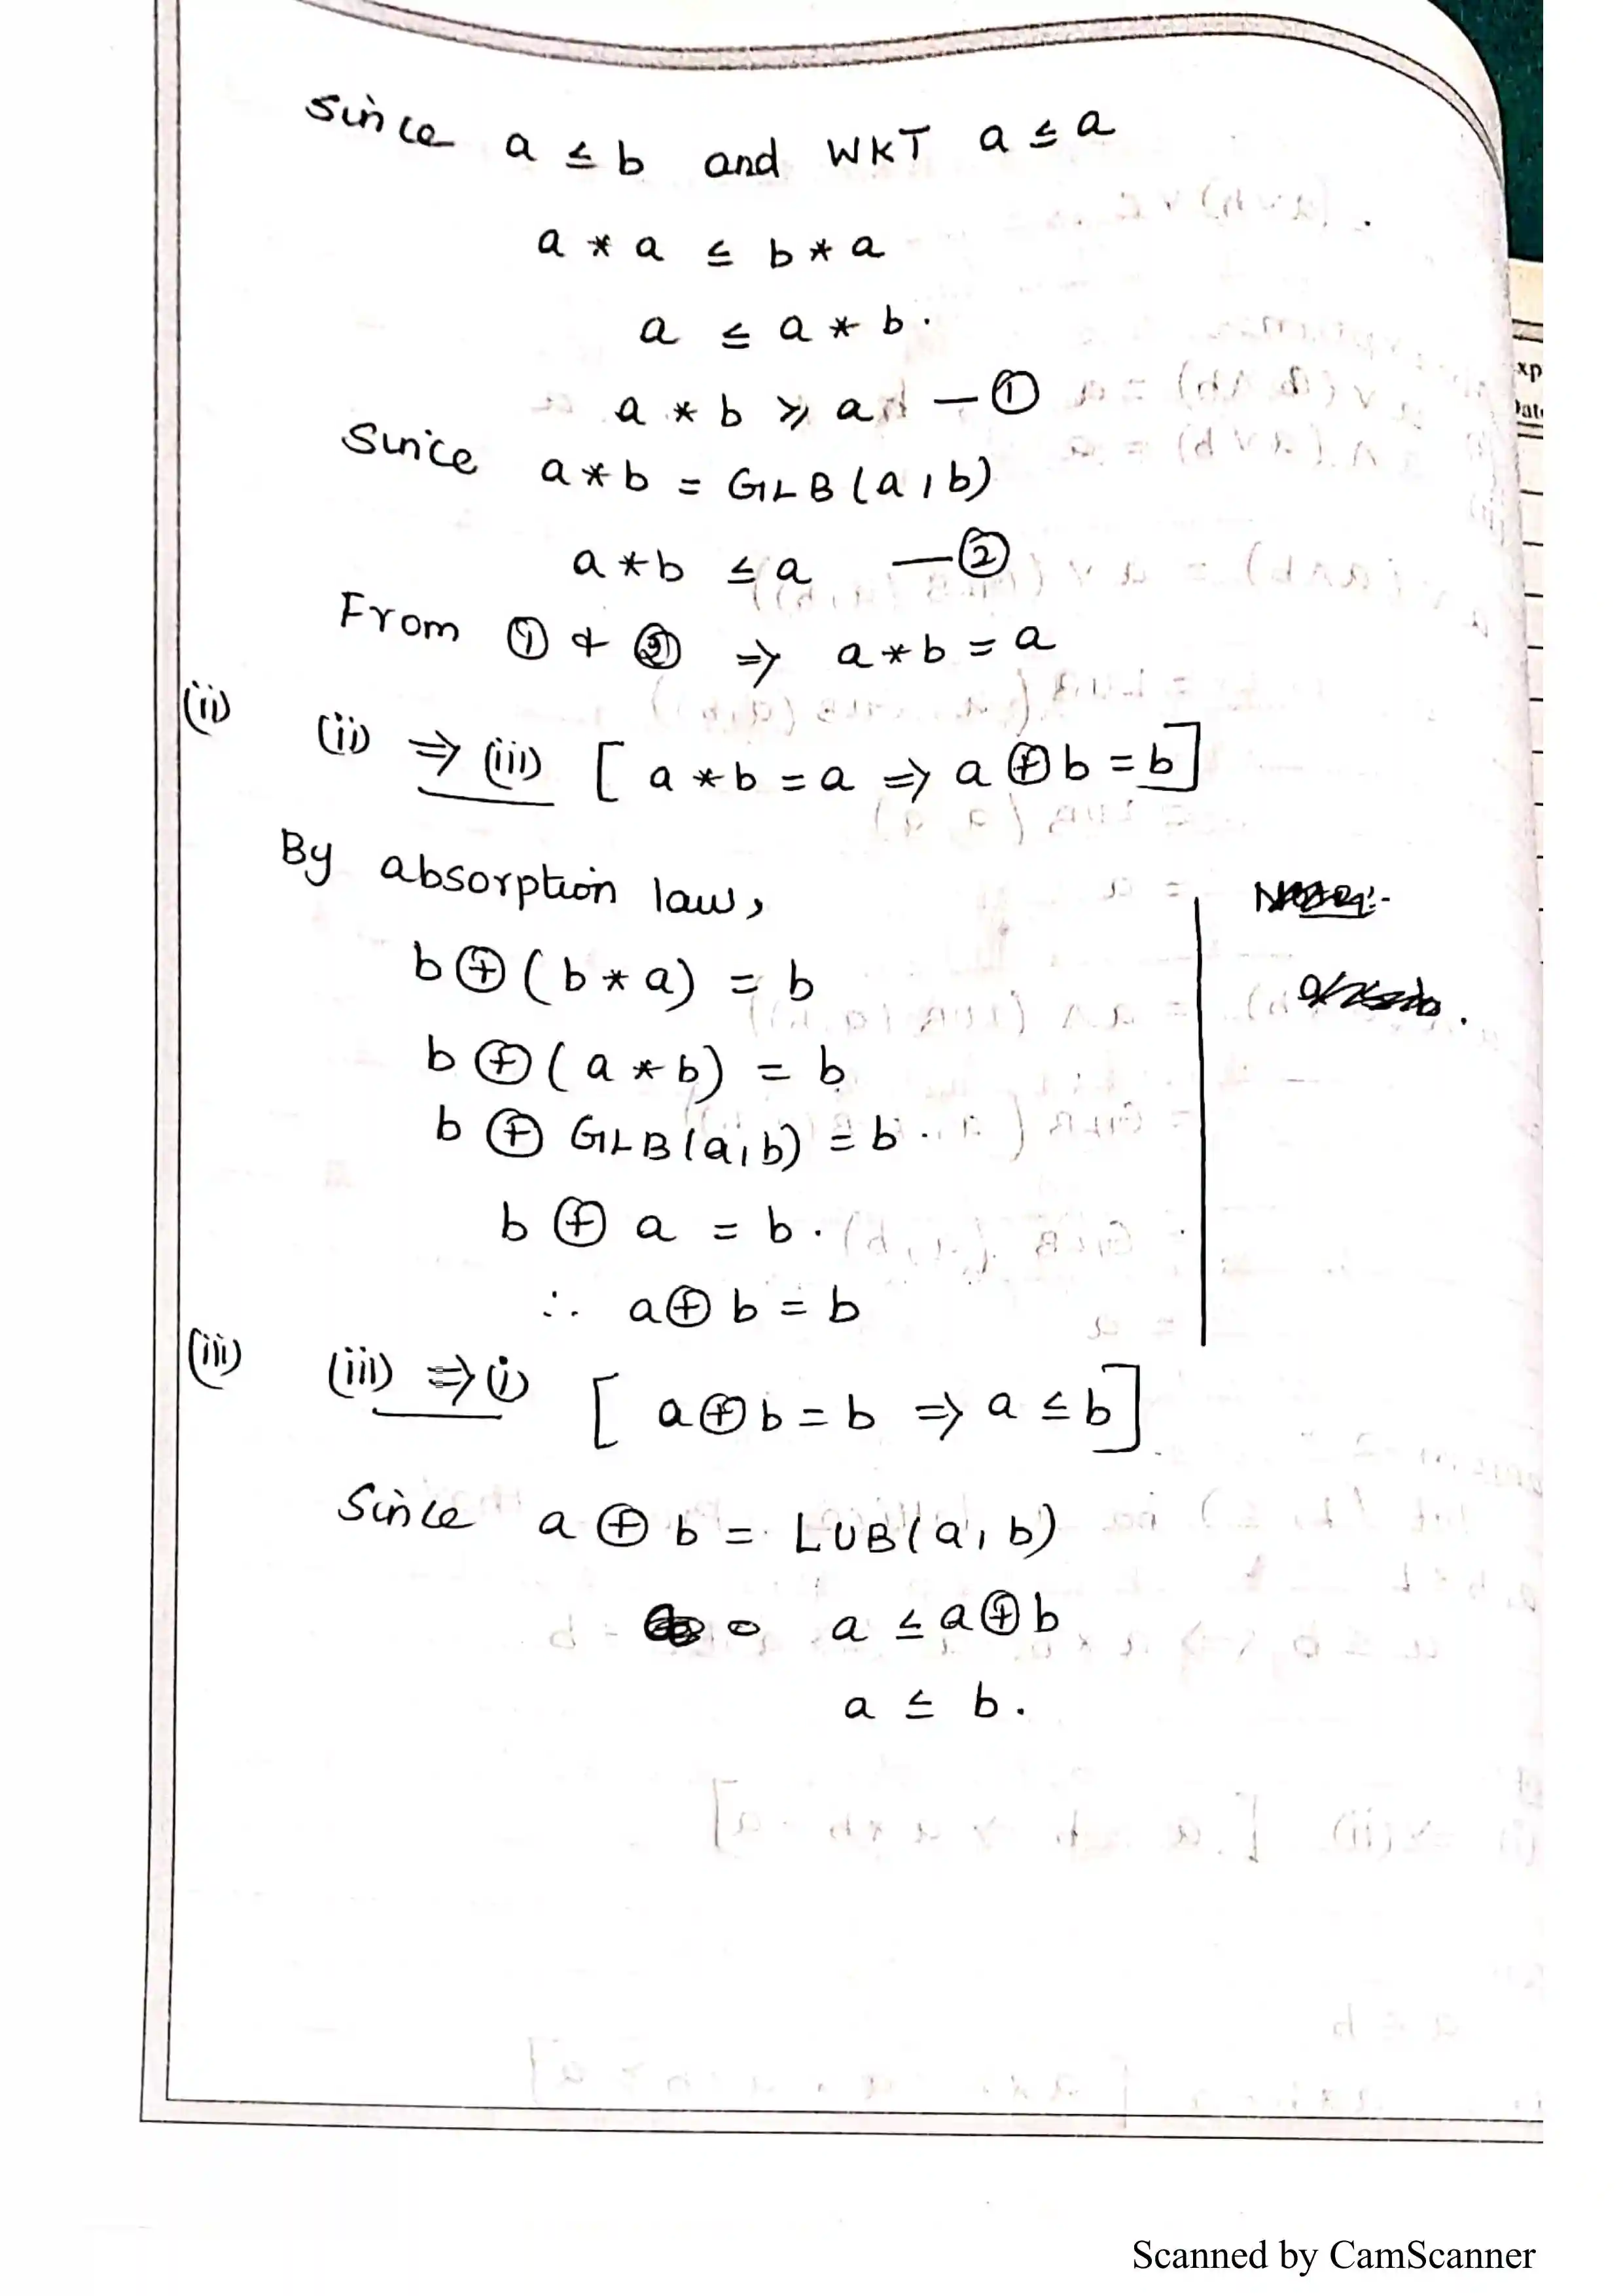 Since a ≤ b and WKT a ≤ a
a * a ≤ b * a
a ≤ a * b.
a * b ≥ a — ①
Since a * b = GLB (a, b)
a * b ≤ a — ②
From ① & ② ⇒ a * b = a
(ii) (ii) ⇒ (iii) [ a * b = a ⇒ a ⊕ b = b ]
By absorption law,
b ⊕ ( b * a) = b
b ⊕ ( a * b) = b
b ⊕ GLB (a, b) = b.
b ⊕ a = b.
∴ a ⊕ b = b
(iii) (iii) ⇒ (i) [ a ⊕ b = b ⇒ a ≤ b ]
Since a ⊕ b = LUB (a, b)
a ≤ a ⊕ b
a ≤ b.
Scanned by CamScanner